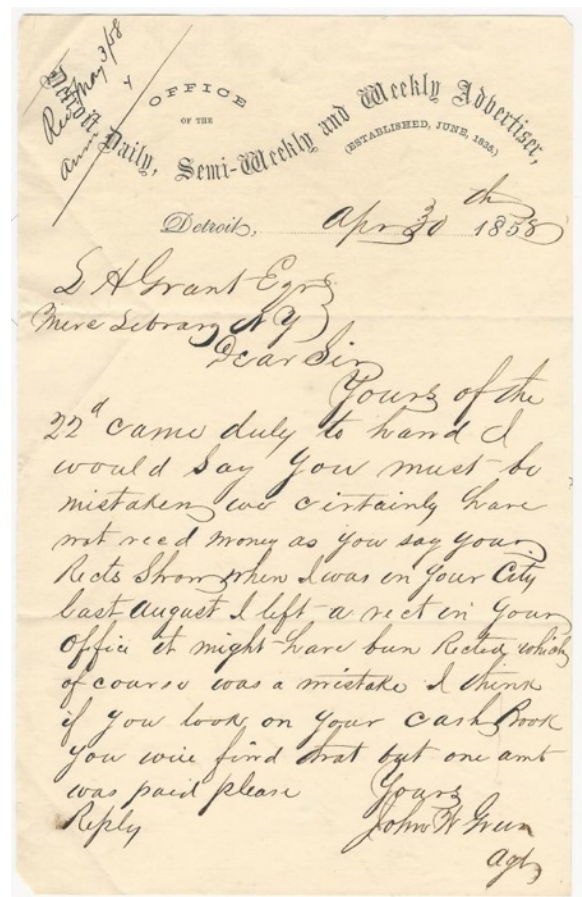 Recd May 3/58
OFFICE
OF THE
Detroit, Daily, Semi-Weekly and Weekly Advertiser,
(ESTABLISHED, JUNE, 1835,)
Detroit, Apr 30th 1858
S H Grant Eqr
Merc Library N Y
Dear Sir
Yours of the
22d came duly to hand I
would Say You must be
mistaken we certainly have
not recd money as you say your
Rects Show when I was in Your City
last august I left a rect in Your
office it might have bun Rected which
of course was a mistake I think
if you look on your cash Book
You wile find that but one amt
was paid please Yours
Reply John W Green
Agt